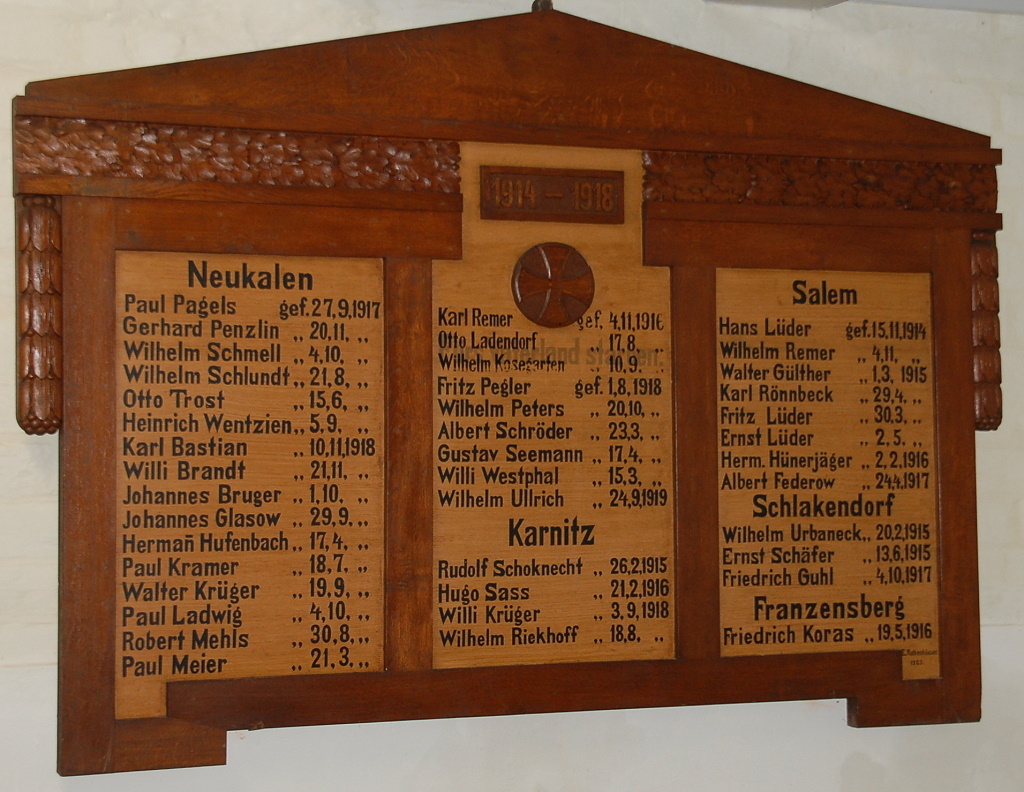 1914 – 1918
Neukalen
Paul Pagels gef. 27,9,1917
Gerhard Penzlin „ 20,11, „
Wilhelm Schmell „ 4,10, „
Wilhelm Schlundt „ 21,8, „
Otto Trost „ 15,6, „
Heinrich Wentzien „ 5,9, „
Karl Bastian „ 10,11,1918
Willi Brandt „ 21,11, „
Johannes Bruger „ 1,10, „
Johannes Glasow „ 29,9, „
Hermañ Hufenbach „ 17,4, „
Paul Kramer „ 18,7, „
Walter Krüger „ 19,9, „
Paul Ladwig „ 4,10, „
Robert Mehls „ 30,8, „
Paul Meier „ 21,3, „
Karl Remer gef. 4,11,1916
Otto Ladendorf „ 17,8, „
Wilhelm Kosegarten „ 10,9, „
Fritz Pegler gef. 1,8,1918
Wilhelm Peters „ 20,10, „
Albert Schröder „ 23,3, „
Gustav Seemann „ 17,4, „
Willi Westphal „ 15,3, „
Wilhelm Ullrich „ 24,9,1919
Karnitz
Rudolf Schoknecht „ 26,2,1915
Hugo Sass „ 21,2,1916
Willi Krüger „ 3,9,1918
Wilhelm Riekhoff „ 18,8, „
Salem
Hans Lüder gef. 15,11,1914
Wilhelm Remer „ 4,11, „
Walter Gülther „ 1,3, 1915
Karl Rönnbeck „ 29,4, „
Fritz Lüder „ 30,3, „
Ernst Lüder „ 2,5, „
Herm. Hünerjäger „ 2,2,1916
Albert Federow „ 24,4,1917
Schlakendorf
Wilhelm Urbaneck „ 20,2,1915
Ernst Schäfer „ 13,6,1915
Friedrich Guhl „ 4,10,1917
Franzensberg
Friedrich Koras „ 19,5,1916